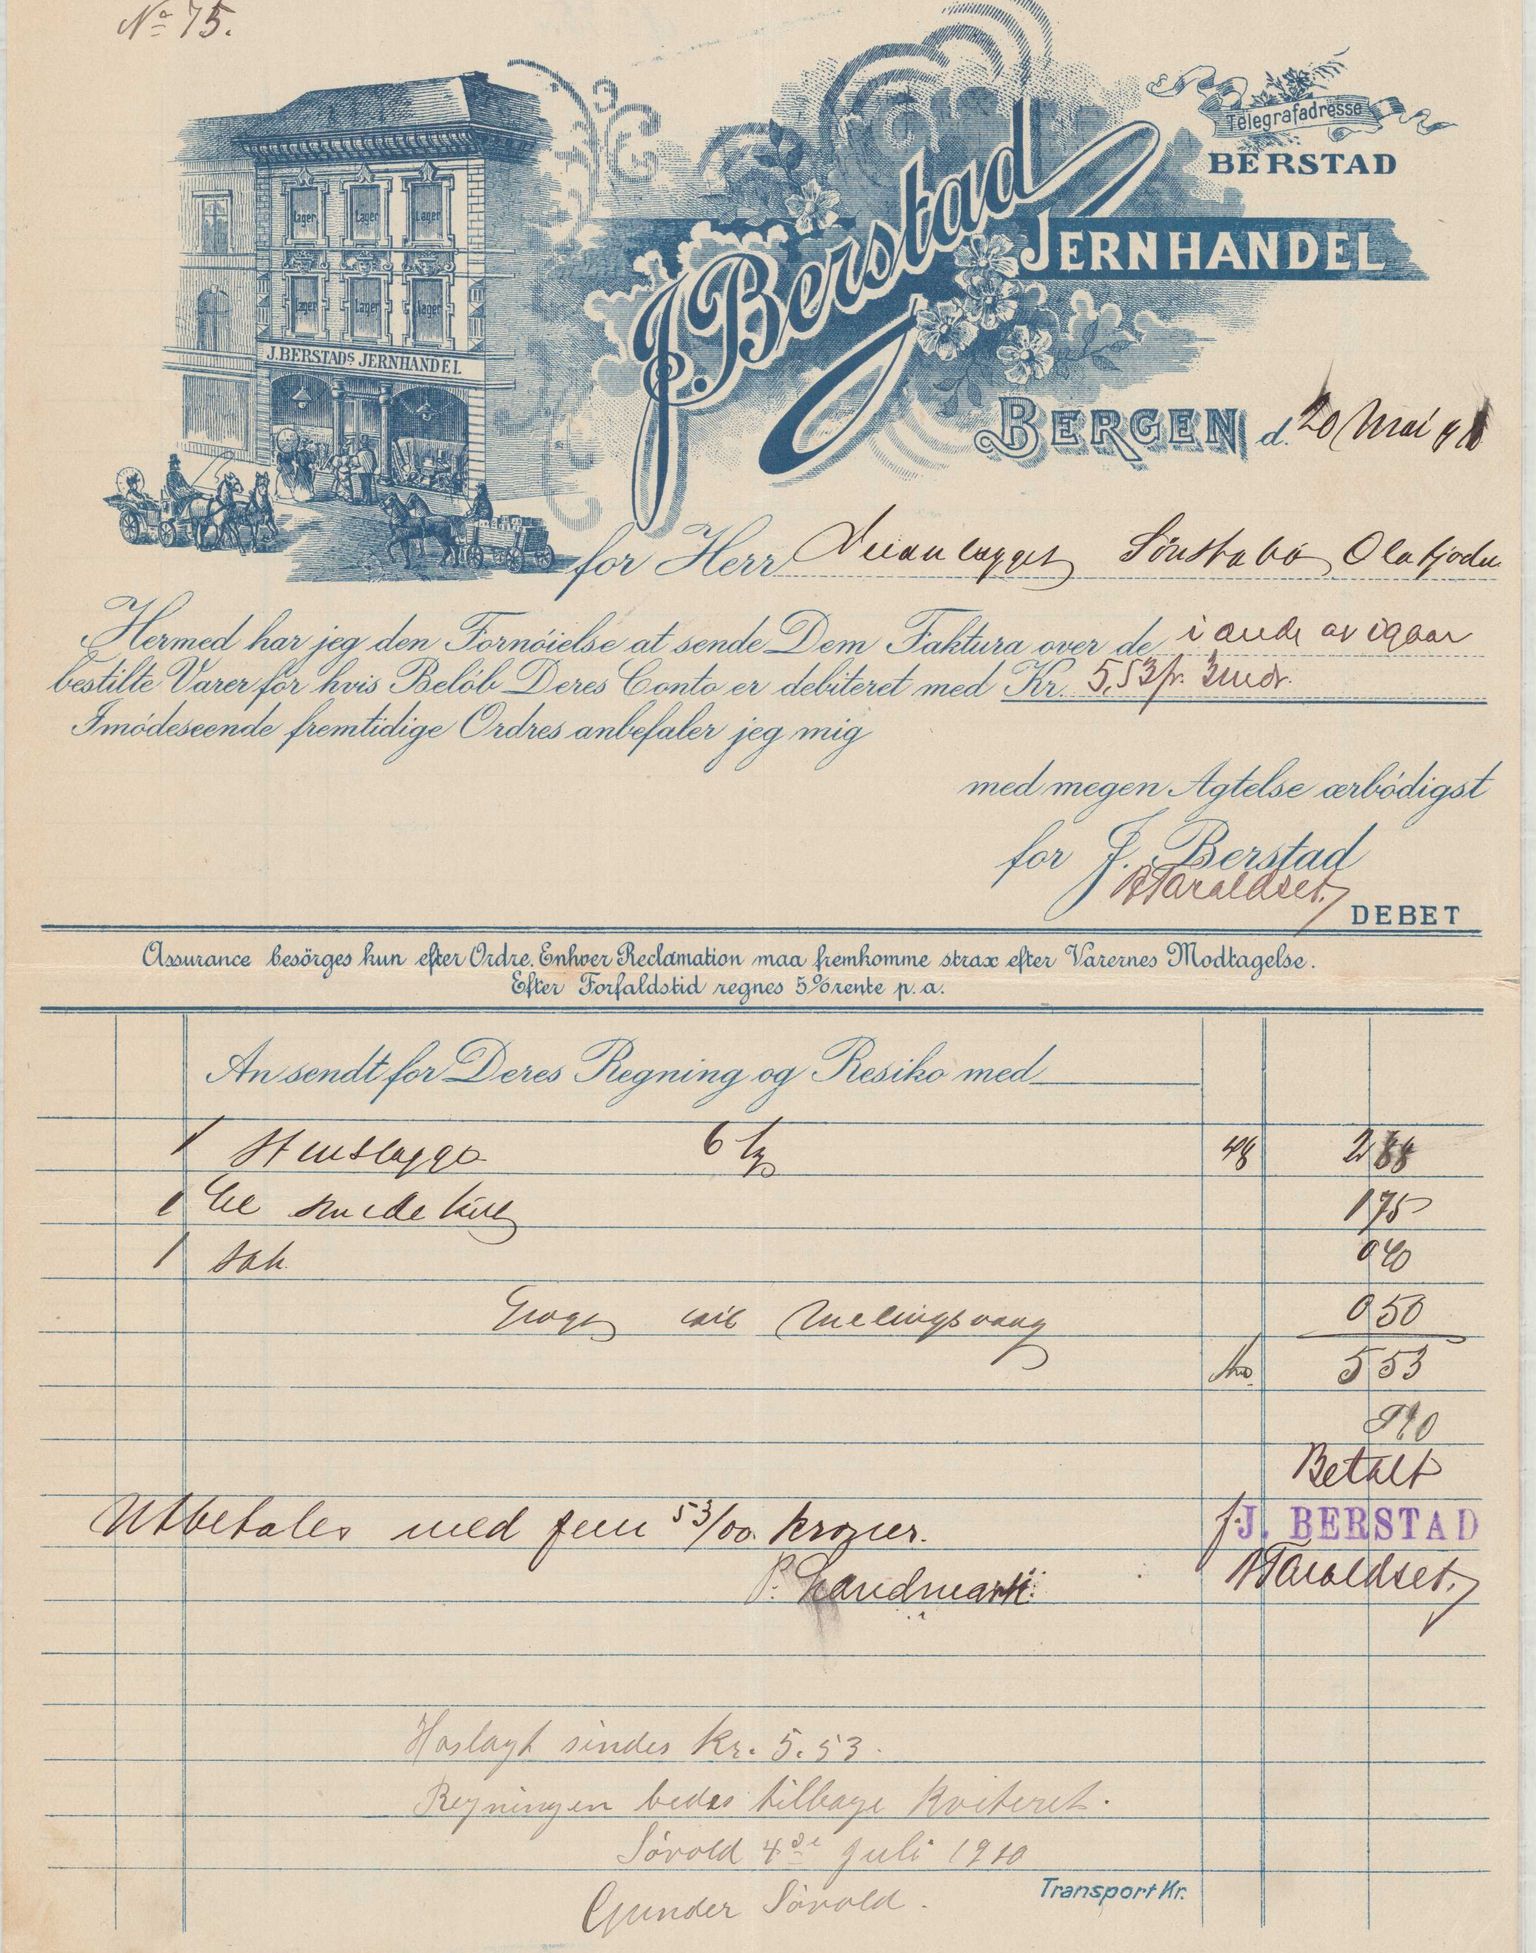 No 75.
Telegrafadresse
BERSTAD
J. Berstad
JERNHANDEL
Lager Lager Lager
Lager Lager Lager
J. BERSTADS JERNHANDEL
BERGEN d. 20 Mai 1910
for Herr Veianlægget Olefjorden
Hermed har jeg den Fornöielse at sende Dem Faktura over de i ande av igaar
bestilte Varer for hvis Belöb Deres Conto er debiteret med Kr. 5,53 pr. 3 mdr.
Imödeseende fremtidige Ordres anbefaler jeg mig
med megen Agtelse ærbödigst
for J. Berstad
B Taraldset.
DEBET
Assurance besörges kun efter Ordre. Enhver Reclamation maa fremkomme strax efter Varernes Modtagelse.
Efter Forfaldstid regnes 5% rente p.a.
An sendt for Deres Regning og Resiko med
1 Stenslægge 6 kg 48 2 88
1 smede 1 75
1 sak 0 40
0 50
5 53
Betalt
Utbetales med fem 53/00 kroner.
f. J. BERSTAD
P. Landmark.
B Taraldset.
Haslagt sindes kr. 5.53.
Regningen bedes tilbage kviteret.
Sövold 4de juli 1910
Gunder Sövold.
Transport Kr.